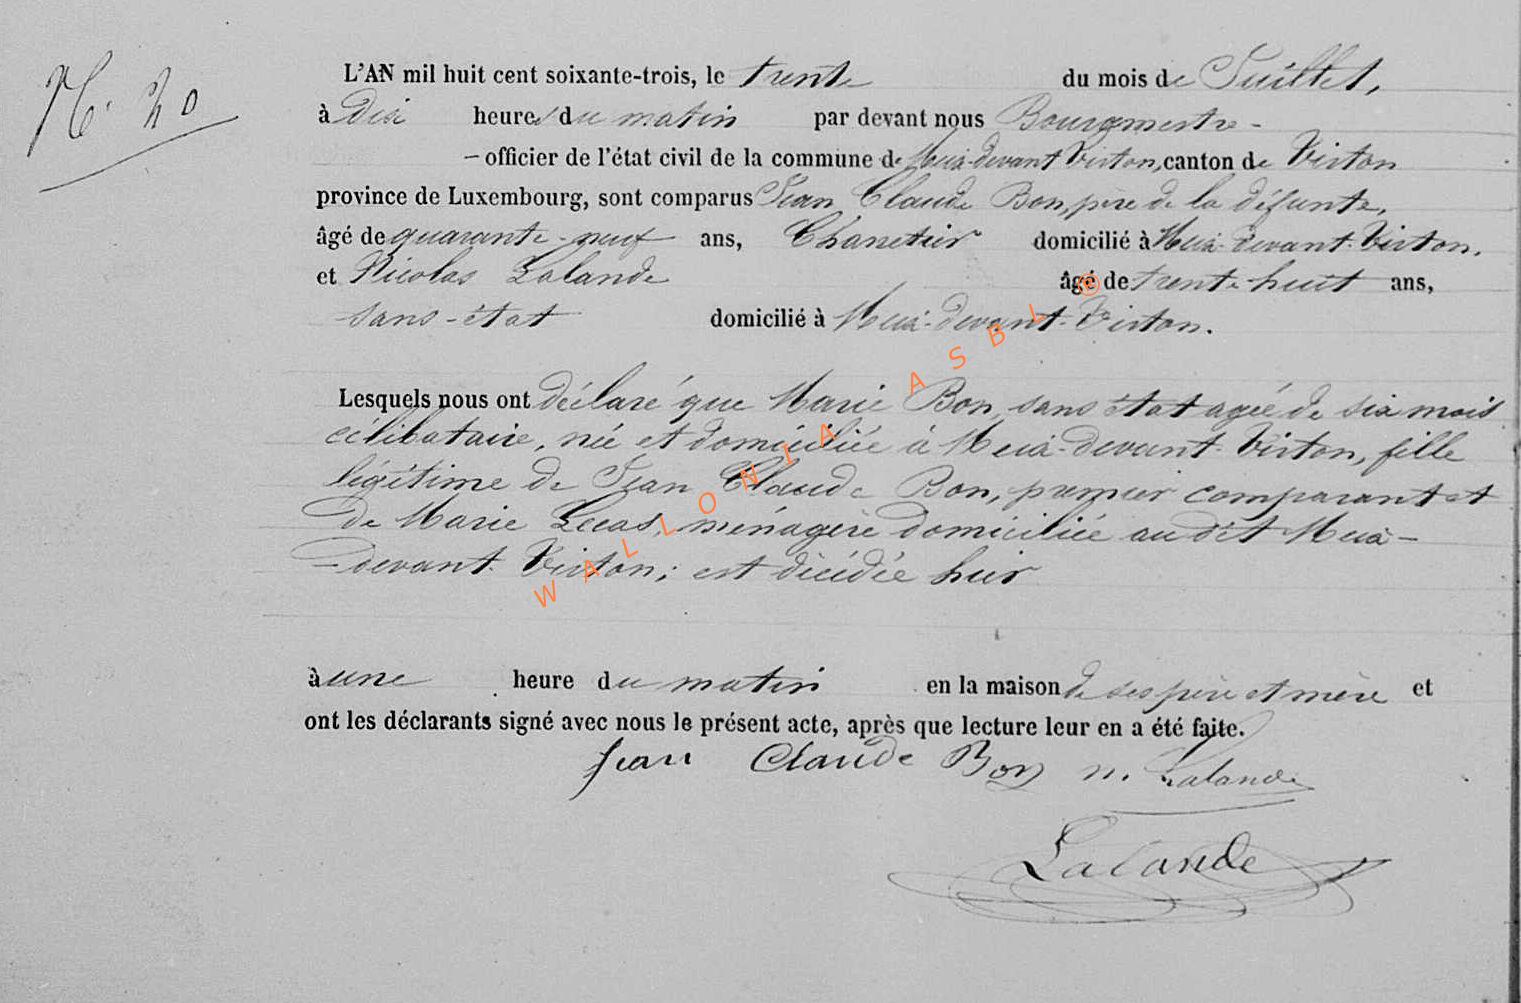 N. 20
L'AN mil huit cent soixante-trois, le trente du mois de Juillet,
à dix heures du matin par devant nous Bourgmestre -
- officier de l'état civil de la commune de Meix-devant Virton, canton de Virton
province de Luxembourg, sont comparus Jean Claude Bon, père de la défunte,
âgé de quarante-neuf ans, Charretier domicilié à Meix-devant-Virton.
et Nicolas Lalande âgé de trente-huit ans,
sans-état domicilié à Meix-devant-Virton.
Lesquels nous ont déclaré que Marie Bon, sans état agée de six mois
célibataire, née et domiciliée à Meix-devant-Virton, fille
légitime de Jean Claude Bon, premier comparant et
de Marie Lecas, ménagère domiciliée au dit Meix-
-devant-Virton; est décédée hier
à une heure du matin en la maison de ses père et mère et
ont les déclarants signé avec nous le présent acte, après que lecture leur en a été faite.
Jean Claude Bon n. Lalande
Lalande
WALLONIA ASBL ®